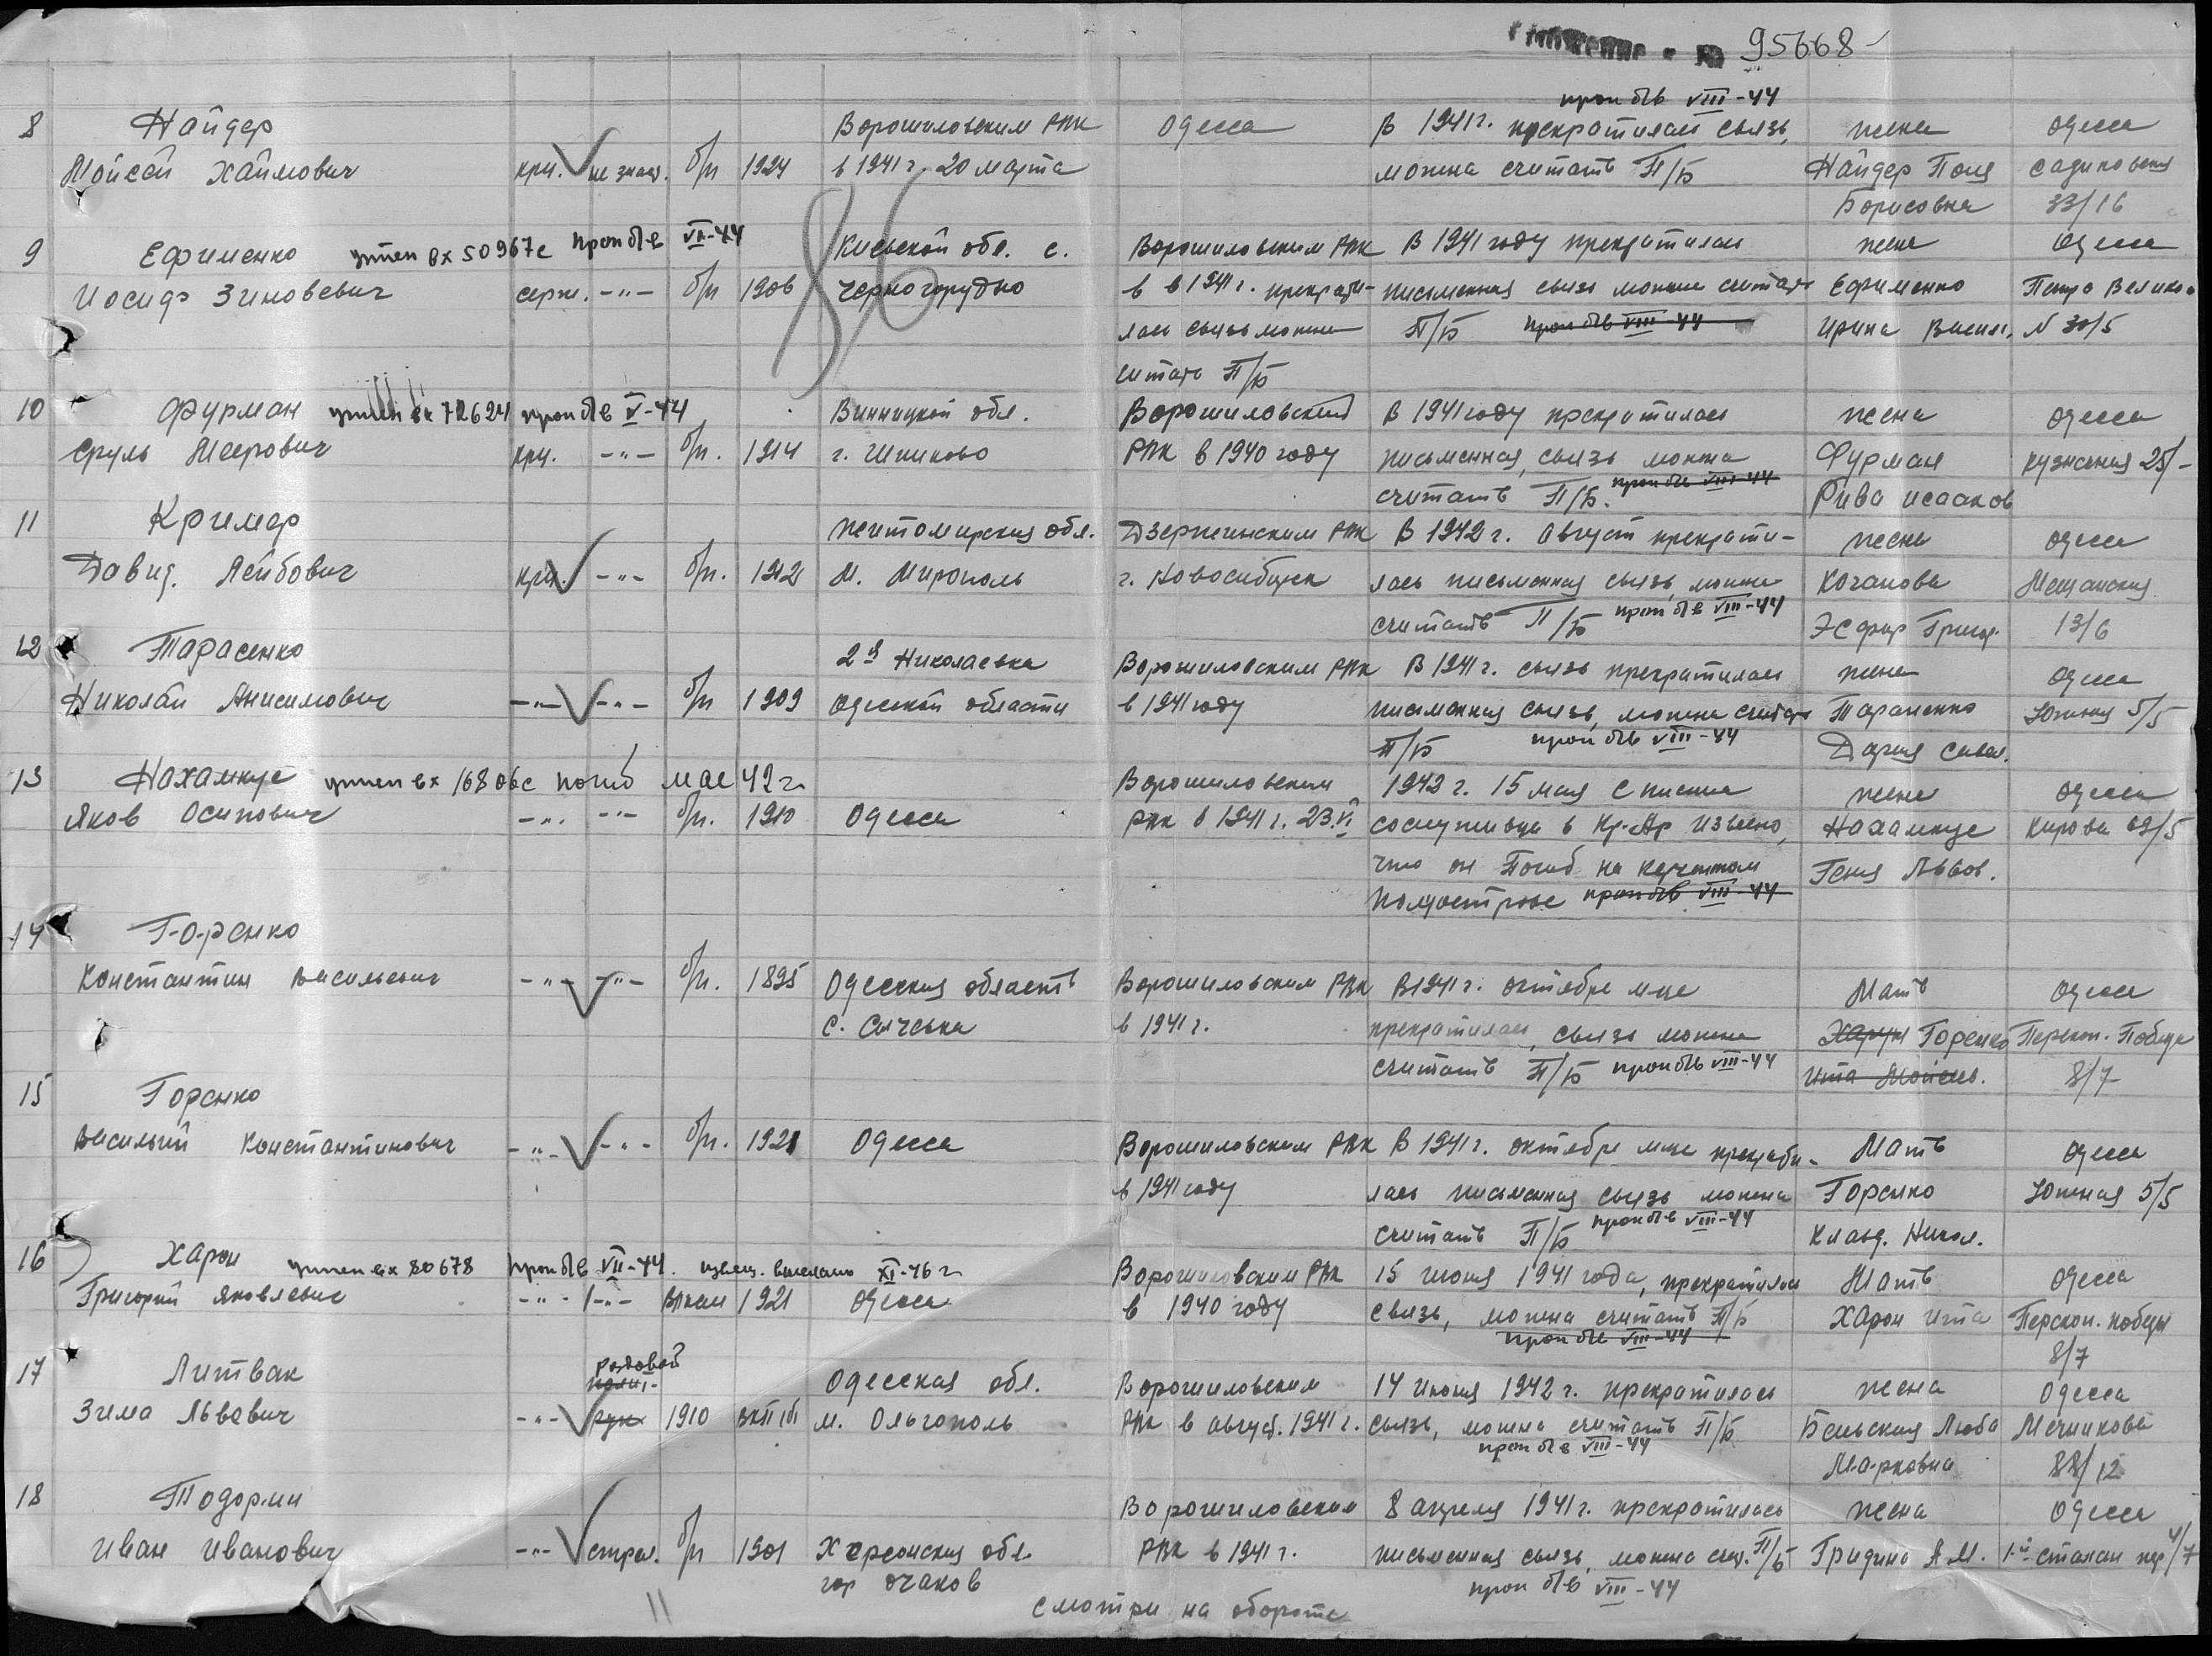 95668
проп б/в VIII-44
8 Найдер Ворошиловским РВК Одесса В 1941 г. прекратилась связь, жена Одесса
Мойсей Хаймович крн. не знает. б/п 1924 в 1941 г. 20 марта можна считать П/Б Найдер Поля Садиковская
Борисовна 33/16
86
9 Ефименко учтен вх 50967с проп б/в VII-44 Киевской обл. с. Ворошиловским РВК В 1941 году прекратилась жена Одесса
Иосиф Зиновевич серж. -"- б/п 1906 Черногорудко в в 1941 г. прекрати- письменная связь можна считать Ефименко Петра Велико
лась связь можна П/Б проп б/в VIII-44 Ирина Васил. N 30/5
щитать П/Б
10 Фурман учтен вх 72624 проп б/в V-44 Винницкой обл. Ворошиловский В 1941 году прекратилась жена Одесса
Сруль Меерович крн. -"- б/п. 1914 г. Шпиково РВК в 1940 году письменная связь можна Фурман Кузнечная 25/-
считать П/Б. проп б/в VIII-44 Рива Исааков
11 Кример Житомирская обл. Дзержинским РВК В 1942 г. Август прекрати- жена Одесса
Давид Лейбович крн. -"- б/п. 1912 М. Мирополь г. Новосибирск лась письменная связь, можна Коганова Мещанская
считать П/Б проп б/в VIII-44 Эсфир Григор. 13/6
12 Тарасенко 2я Николаевка Ворошиловским РВК В 1941 г. связь прекратилась жена Одесса
Николай Анисимович -"- -"- б/п 1909 Одесской области в 1941 году письменная связь, можна считать Тарасенко Южная 5/5
П/Б проп б/в VIII-44 Дария Савел.
13 Нахамкус учтен вх 16806с погиб мае 42 г. Ворошиловским 1942 г. 15 мая с письма жена Одесса
Яков Осипович -"- -"- б/п. 1910 Одесса РВК в 1941 г. 23.VI сослуживца в Кр. Ар извесно, Нахамкус Кирова 69/5
что он Погиб на Керчентом Геня Львов.
полуострове проп б/в VIII-44
14 Горенко
Константин Васильевич -"- -"- б/п. 1895 Одесская область Ворошиловским РВК В 1941 г. октябре м-це Мать Одесса
с. Сычевка в 1941 г. прекратилась, связь можна Харун Горенко Перекоп. Победы
считать П/Б проп б/в VIII-44 Ита Мойсеев. 8/7
15 Горенко
Василий Константинович -"- -"- б/п. 1921 Одесса Ворошиловским РВК В 1941 г. октябре м-це прекрати- Мать Одесса
в 1941 году лась письменная связь можна Горенко Южная 5/5
считать П/Б проп б/в VIII-44 Клавд. Никол.
16 Харон учтен вх 80678 проп б/в VII-44. извещ. выслано XI-46 г Ворошиловским РВК 15 июня 1941 года, прекратилась Мать Одесса
Григорий Яковлевич -"- -"- влксм 1921 Одесса в 1940 году связь, можна считать П/Б Харон Ита Перекоп. победы
проп б/в VIII-44 8/7
17 Литвак рядовой Одесская обл. Ворошиловским 14 июня 1942 г. прекратилась жена Одесса
Зима Львович -"- 1910 вкп/б/ м. Ольгополь РВК в август. 1941 г. связь, можна считать П/Б Бельская Люба Мечникова
проп б/в VIII-44 Марковна 88/12
18 Тодорми Ворошиловским 8 апреля 1941 г. прекратилась жена Одесса
Иван Иванович -"- стрел. б/п 1901 Херсонская обл. РВК в 1941 г. письменная связь, можна счит. П/Б Гридина А.М. 1-й сталин пер 4/7
гор Очаков проп б/в VIII-44
11 смотри на обороте